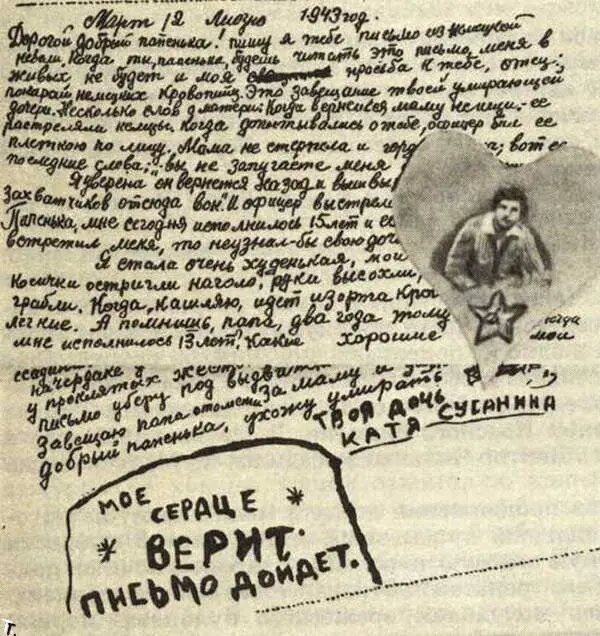 Март 12 Лиозно 1943 год.
Дорогой добрый папенька! пишу я тебе письмо из немецкой
неволи. Когда ты, папенька, будешь читать это письмо, меня в
живых не будет и моя просьба к тебе, отец:
покарай немецких кровопийц. Это завещание твоей умирающей
дочери. Несколько слов о матери. Когда вернешься маму не ищи. ее
растреляли немцы. Когда допытывались о тебе, офицер бил ее
плеткою по лицу. Мама не стерпела и гордо вот ее
последние слова: „вы не запугаете меня
Я уверена он вернется назад и вышвыр
Захватчиков отсюда вон. И офицер выстрел
Папенька, мне сегодня исполнилось 15 лет и ес
встретил меня, то не узнал-бы свою доч
Я стала очень худенькая, мои
Косички остригли наголо, руки высохли,
грабли. Когда, кашляю, идет изорта Кро
легкие. А помнишь, папа, два года тому когда
мне исполнилось 13 лет. Какие хорошие мои
на чердаке у
у проклятых жест
письмо уберу под выдва
Завещаю папа отомсти за маму и
добрый папенька, ухожу умирать
ТВОЯ ДОЧЬ
КАТЯ СУСАНИНА
МОЕ
СЕРДЦЕ
ВЕРИТ.
ПИСЬМО ДОЙДЕТ.
г.